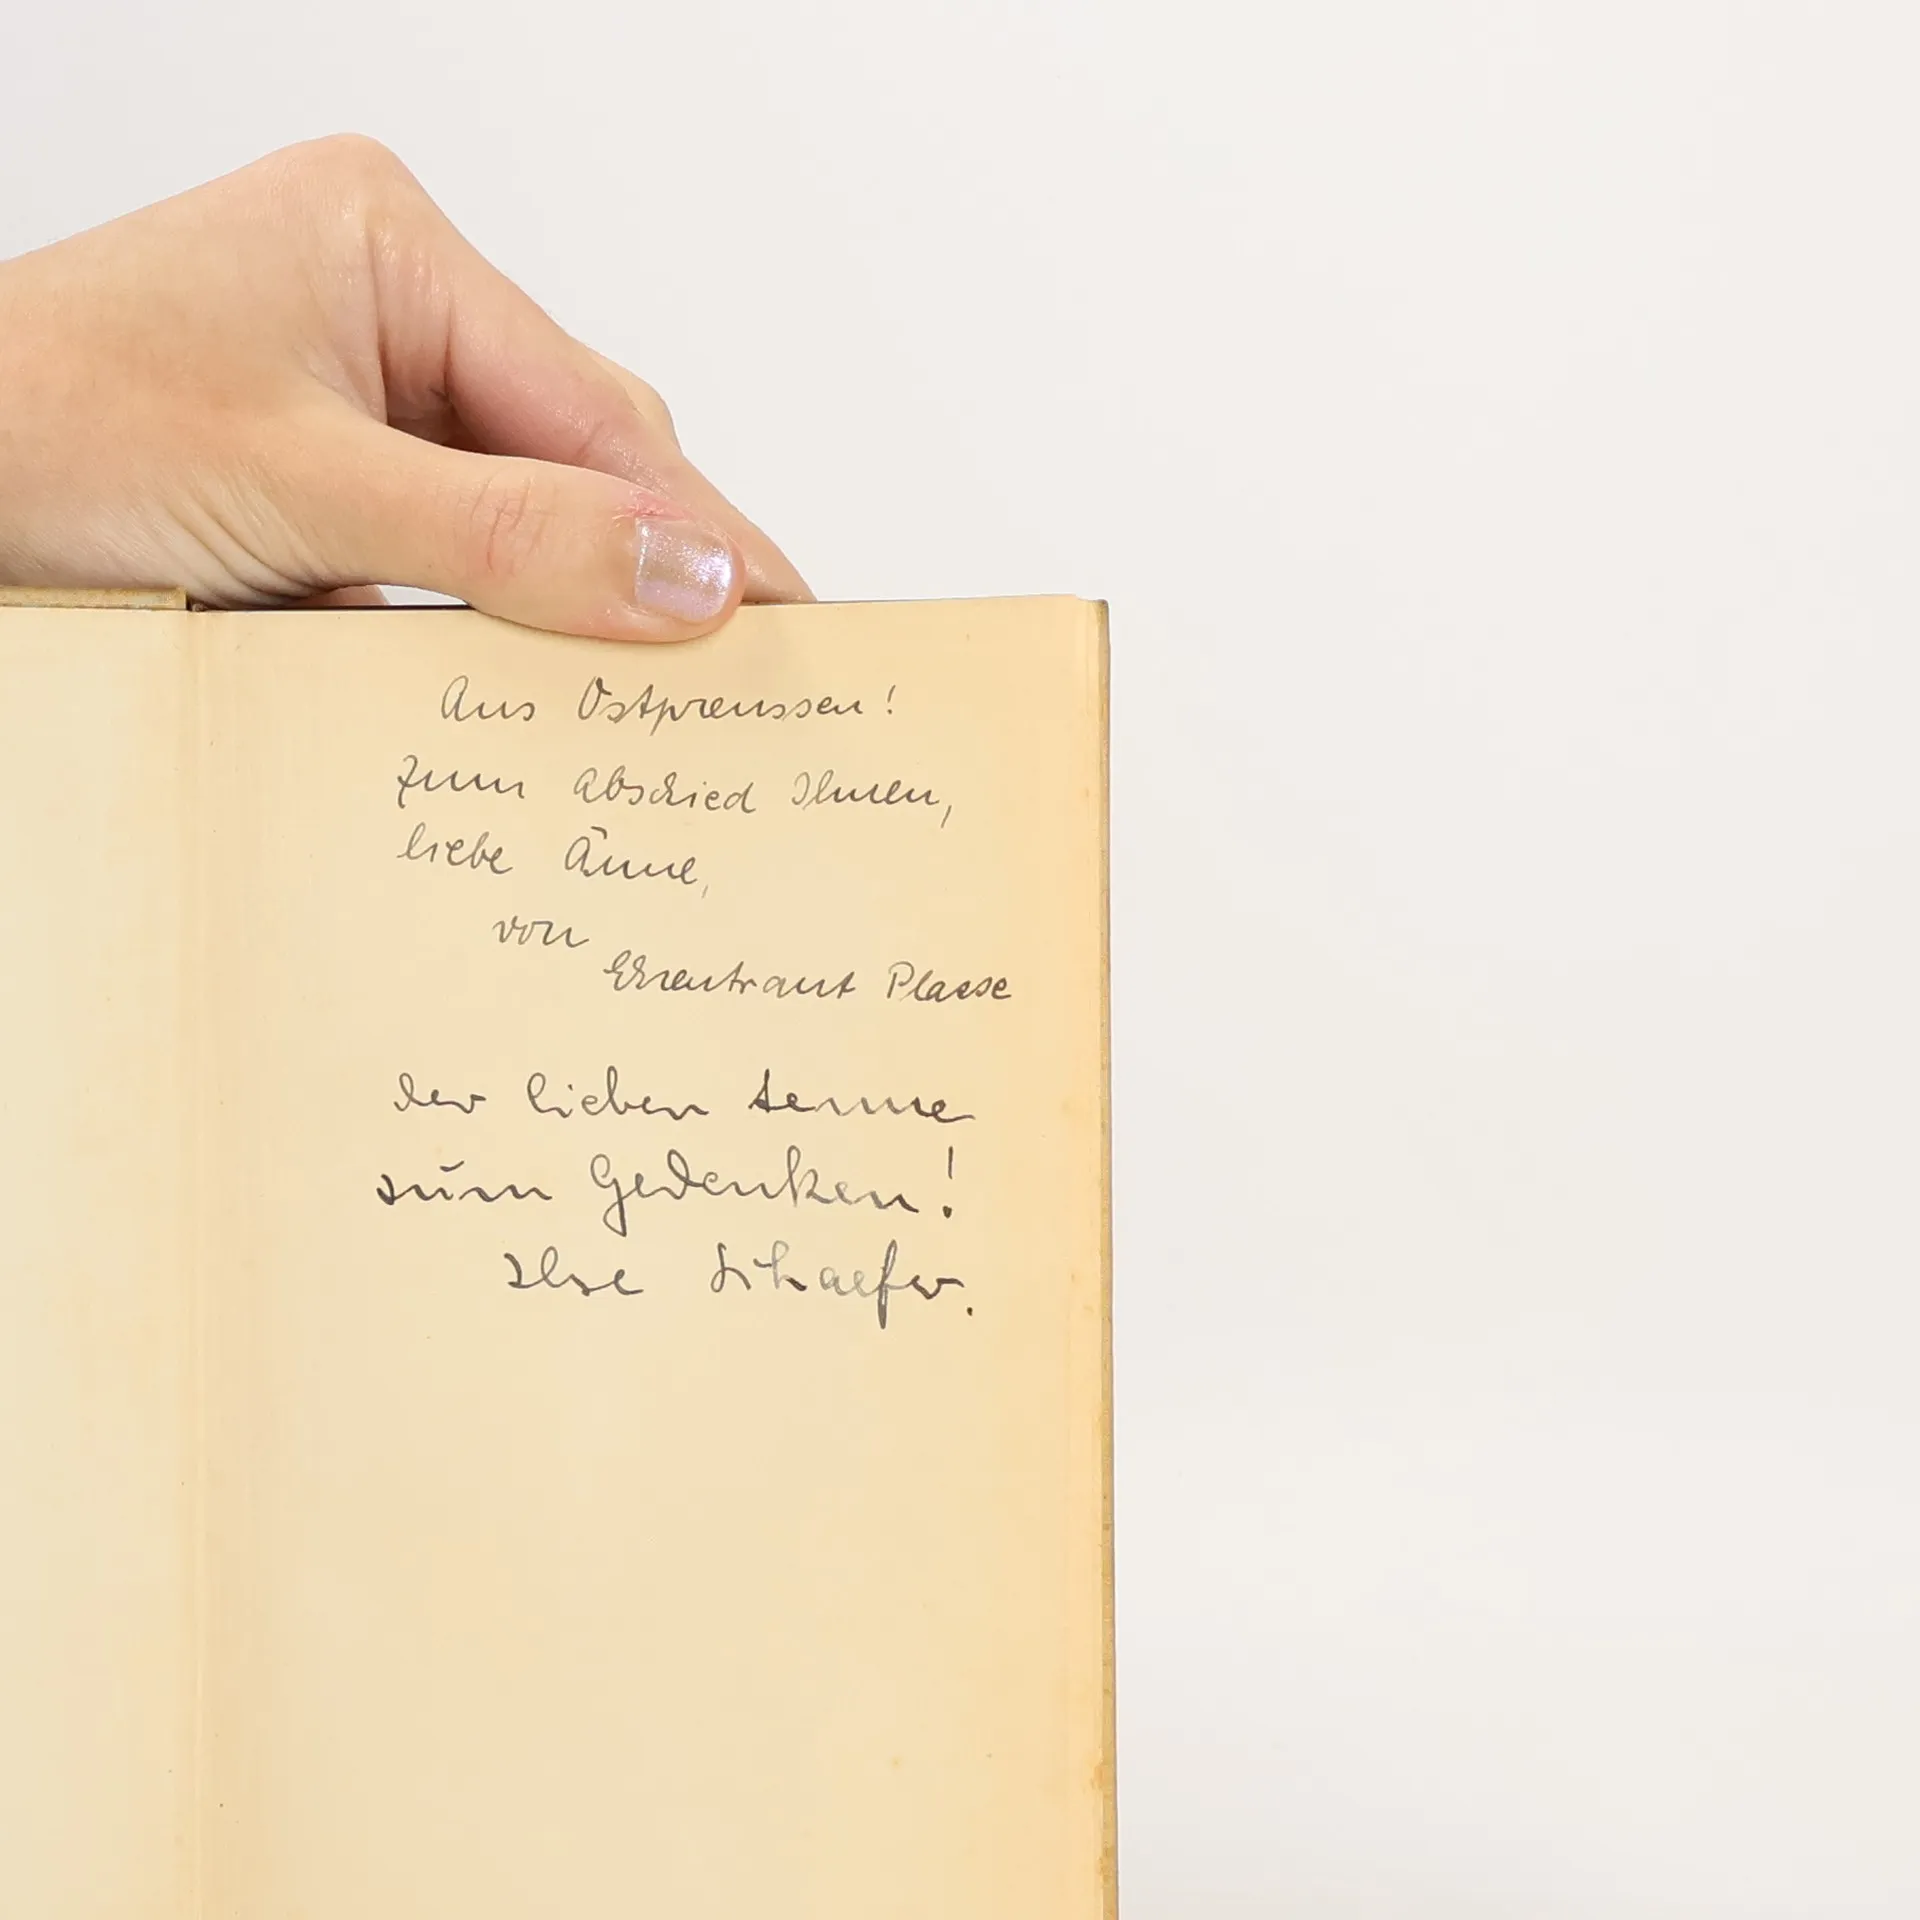 Aus Ostpreussen!
Zum Abschied Ihnen,
liebe Änne,
von
Ehrentraut Plaese
der lieben Aenne
zum Gedenken!
Ilse Schaefer.